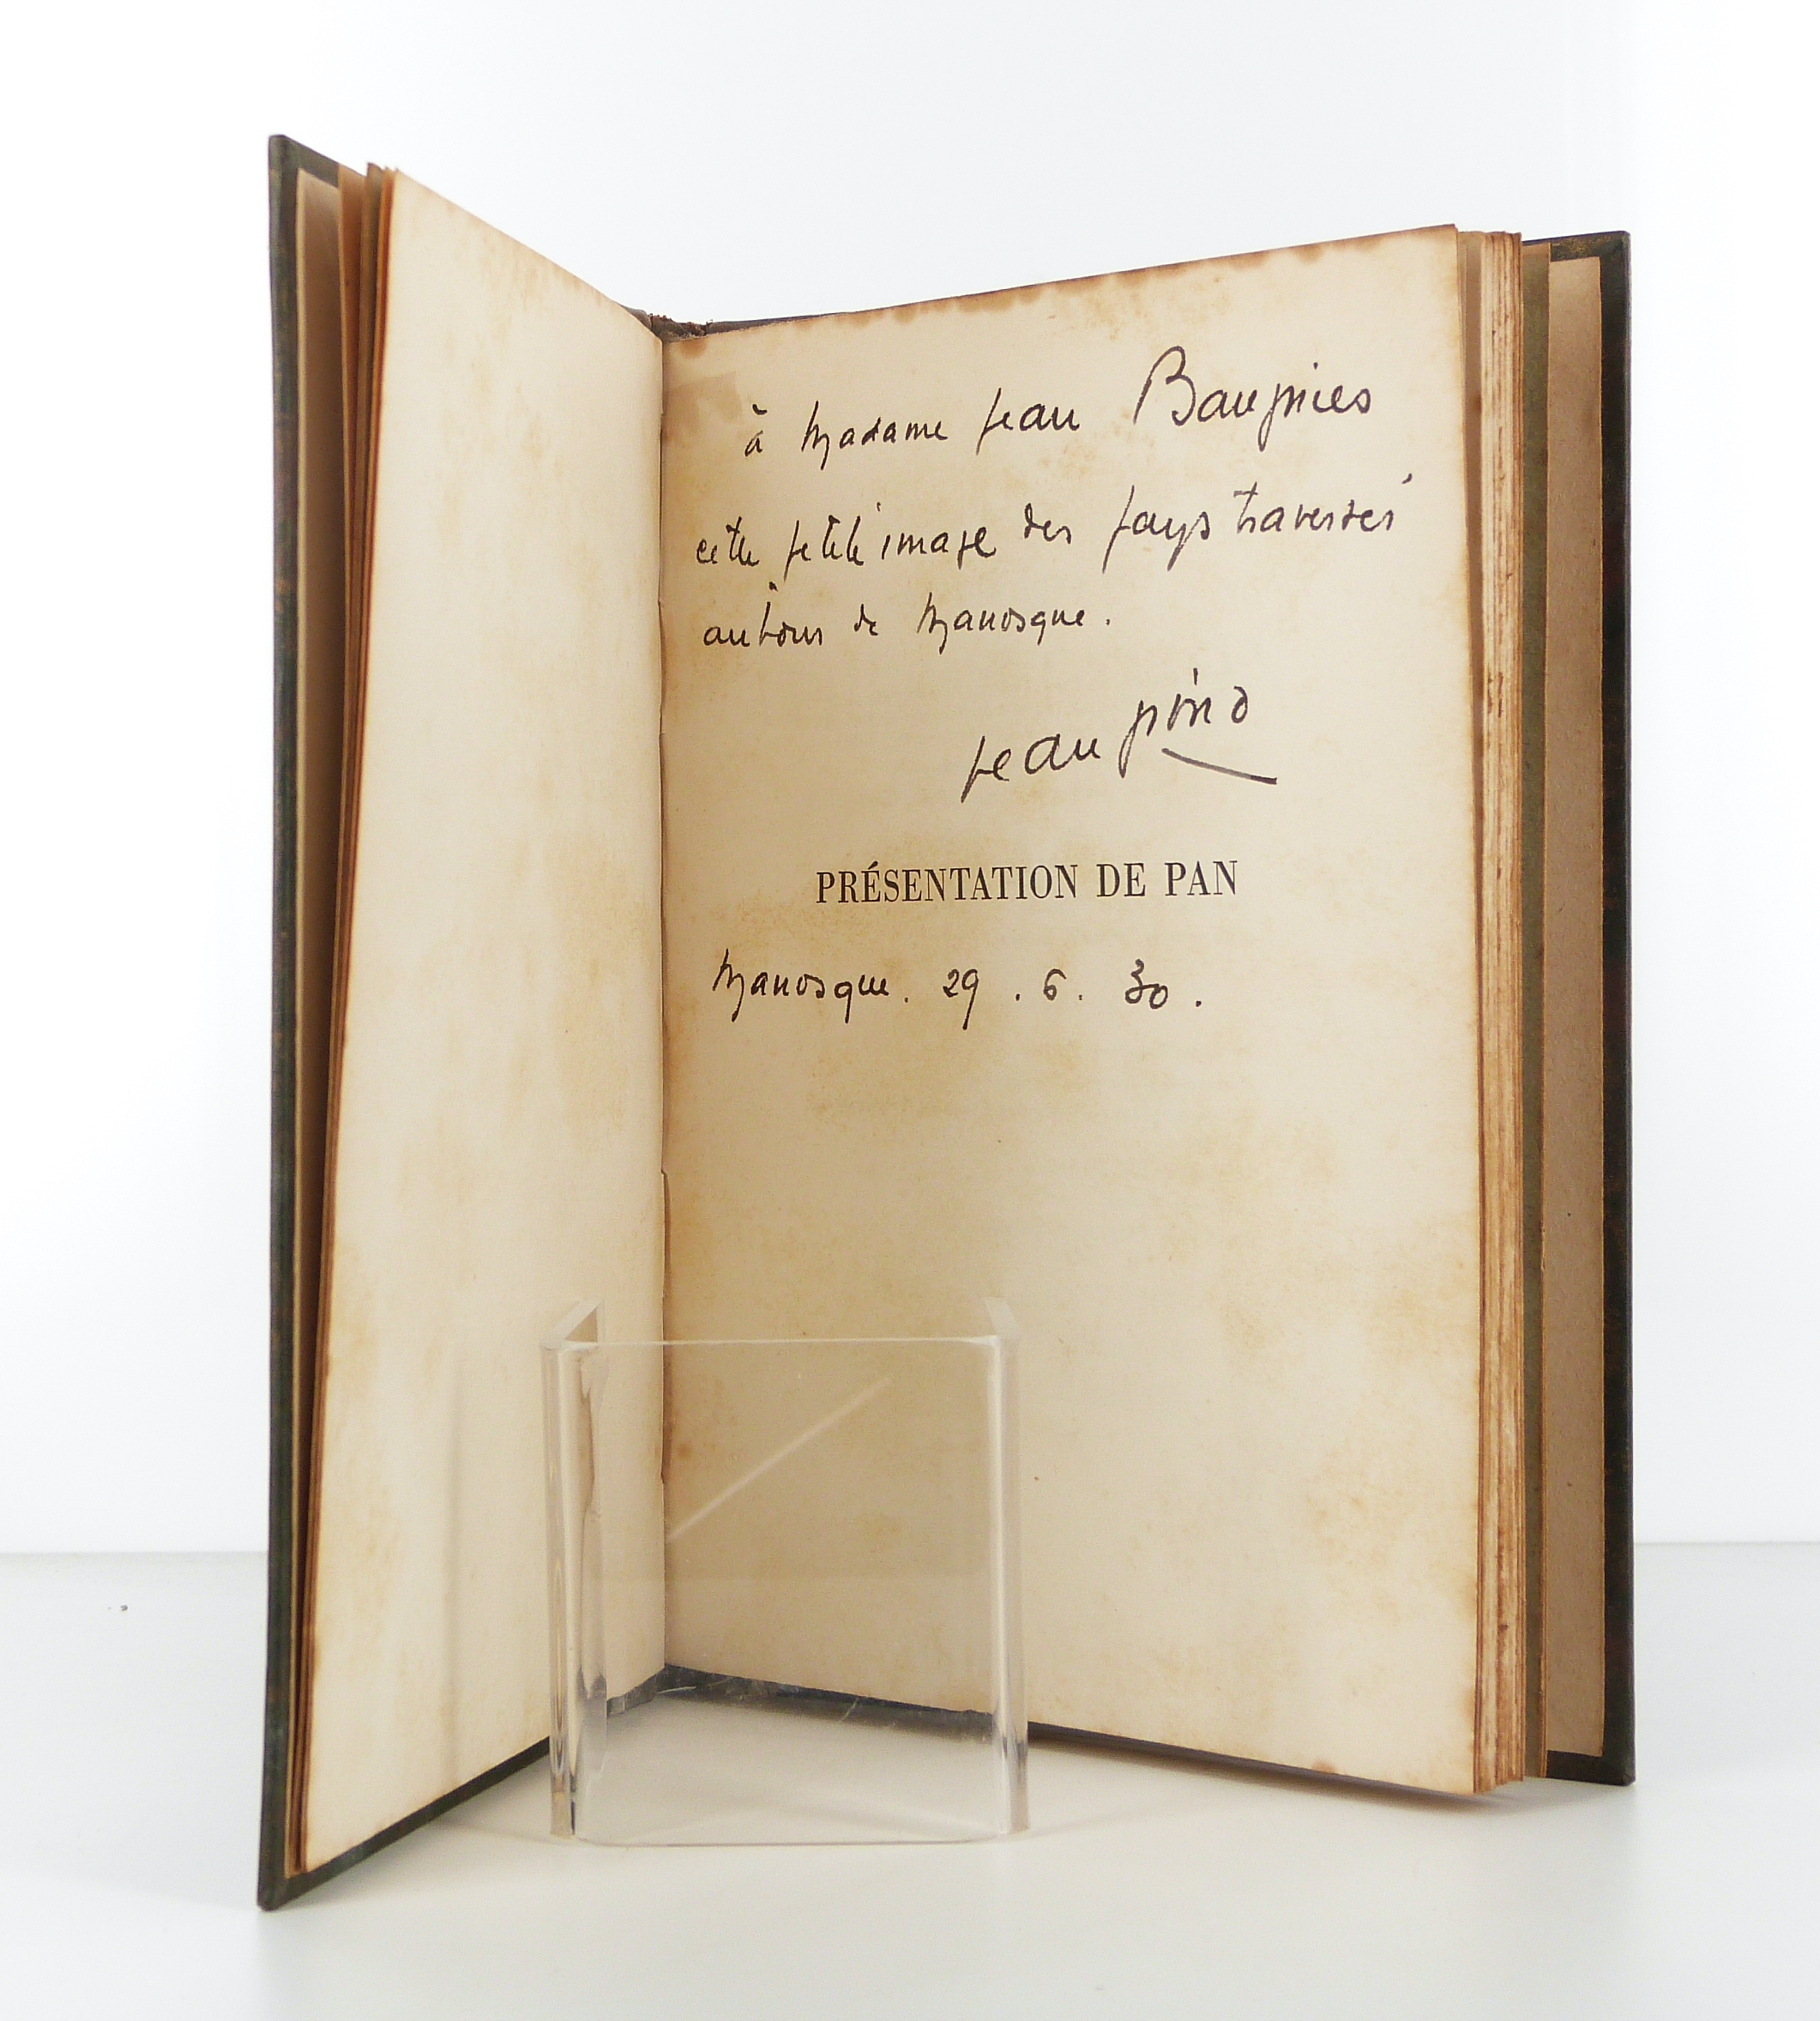 à Madame Jean Baugnies
cette petite image des pays traversés
autour de Manosque.
Jean Giono
PRÉSENTATION DE PAN
Manosque. 29. 6. 30.